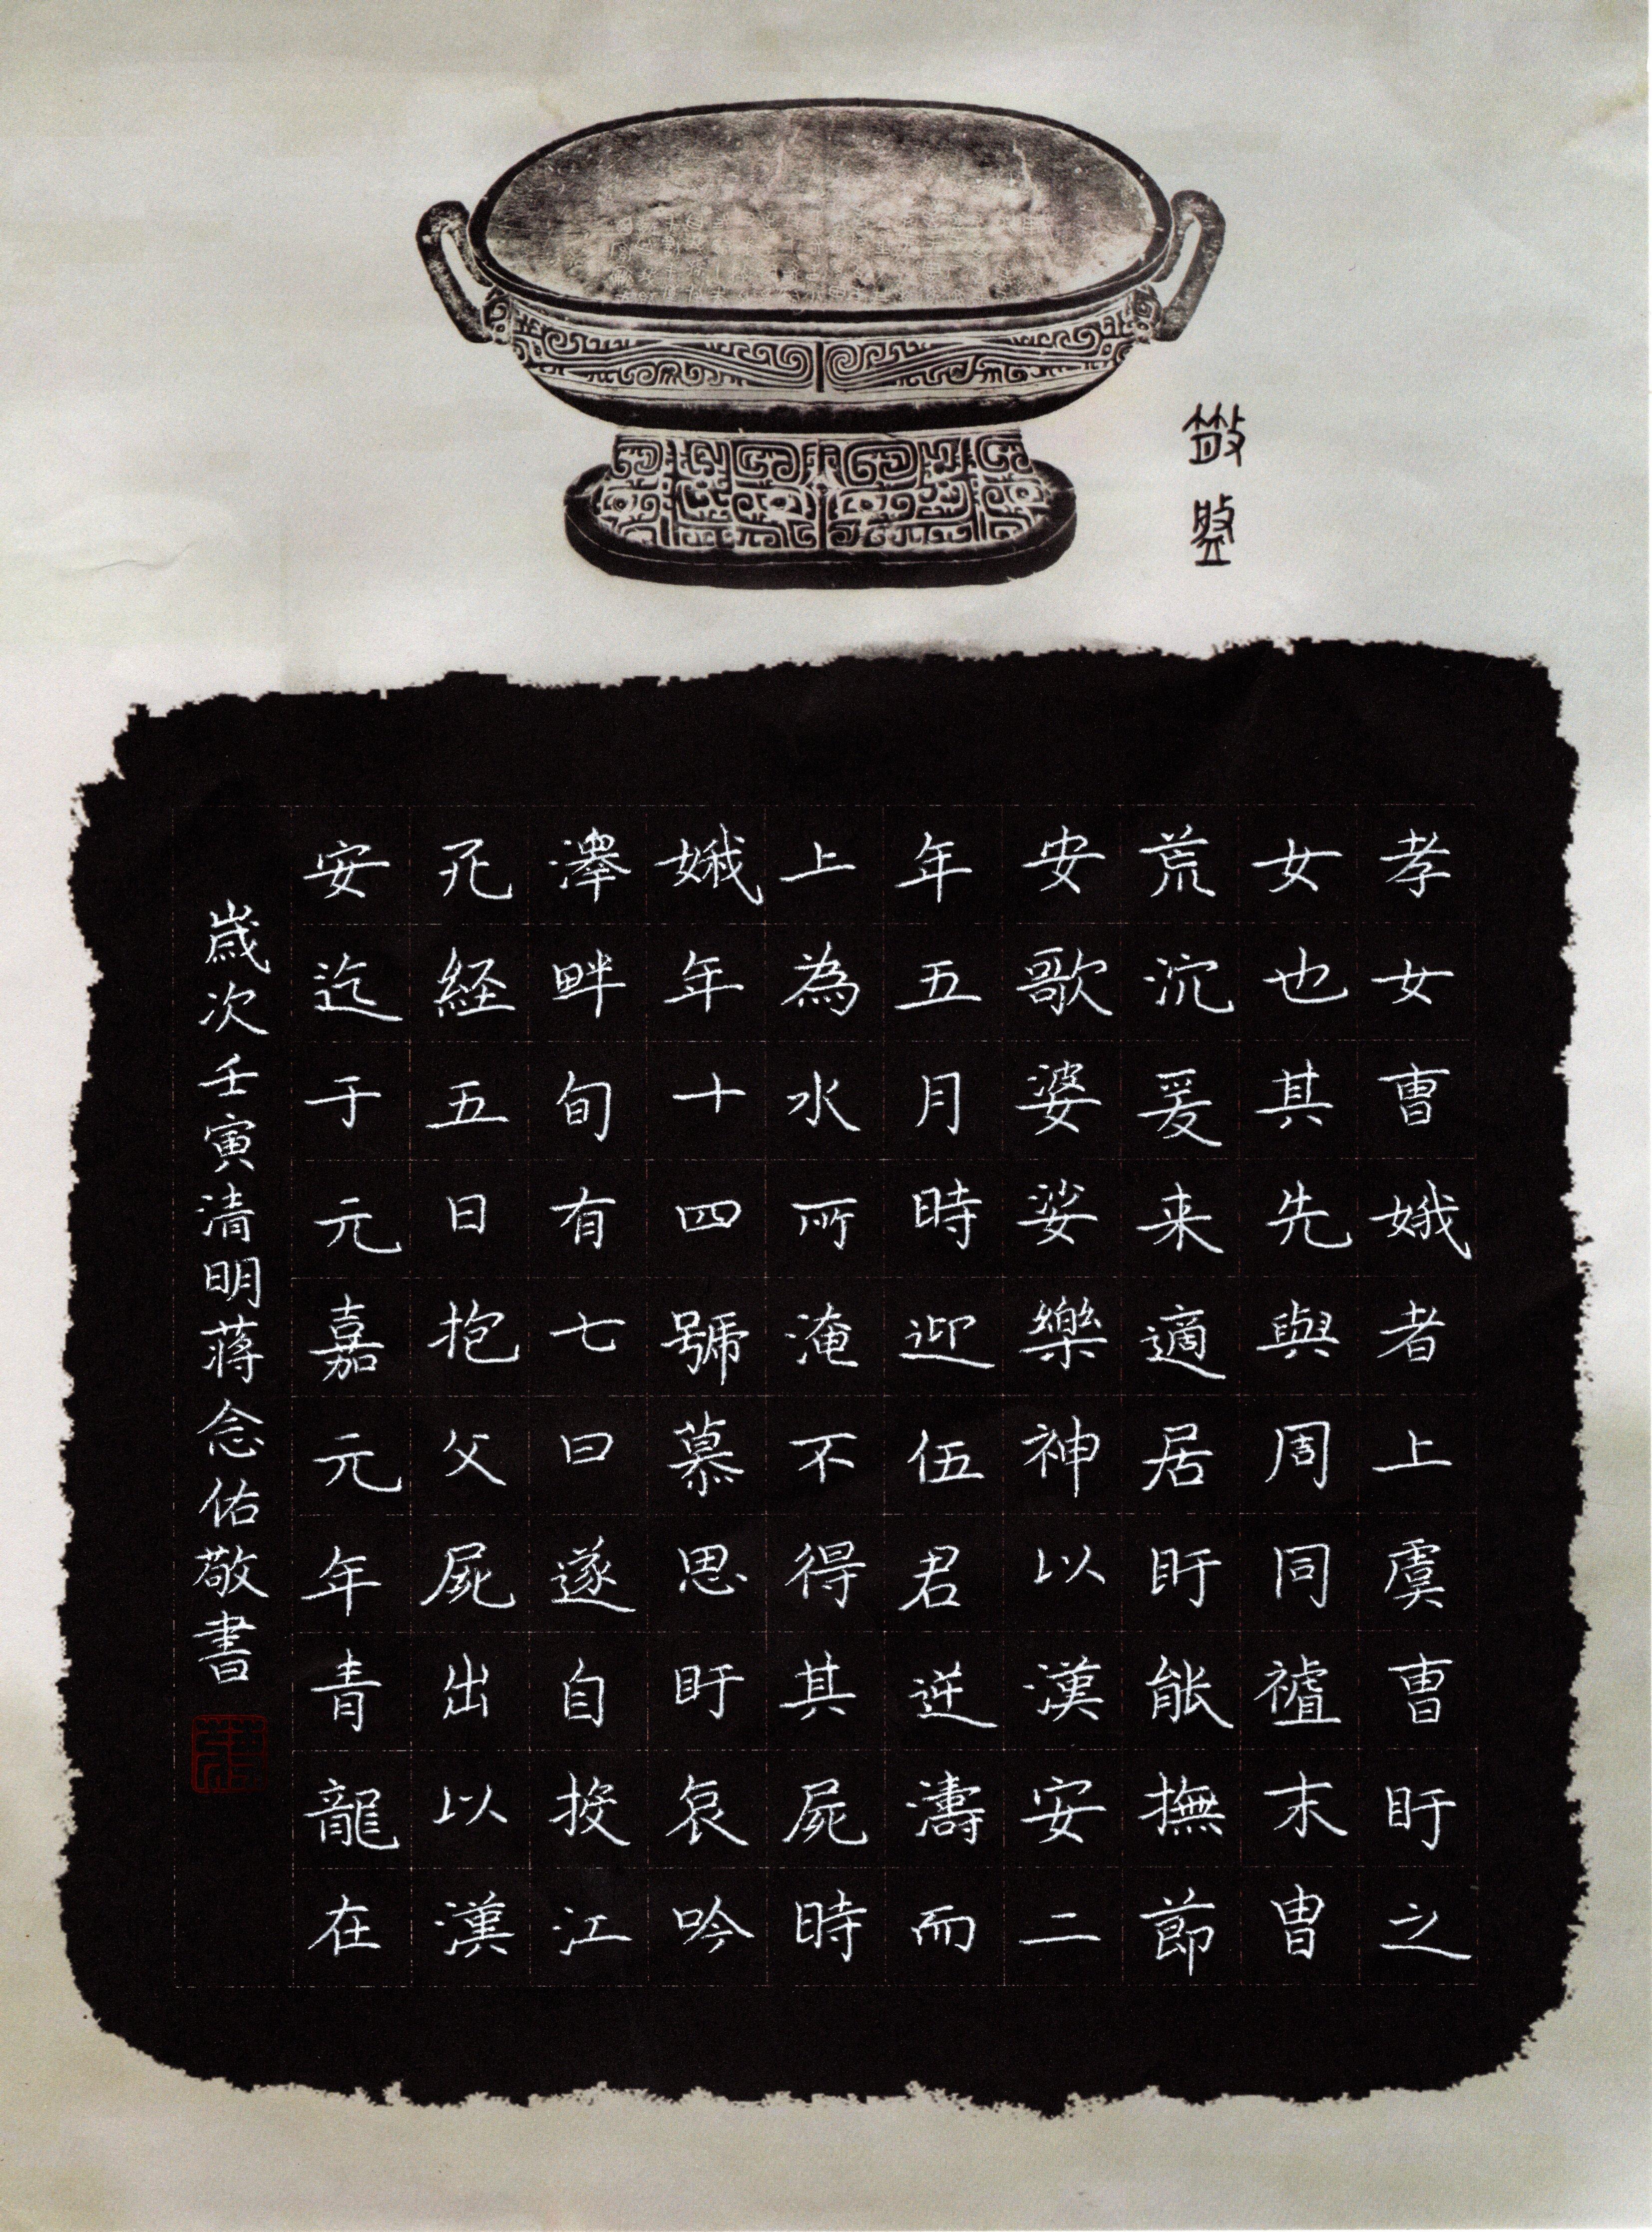 孝女曹娥者上虞曹盱之
女也其先與周同禇末曺
荒沉爰来適居盱能撫節
安歌婆娑樂神以漢安二
年五月時迎伍君逆濤而
上為水所淹不得其屍時
娥年十四號慕思盱哀吟
澤畔旬有七日遂自投江
死経五日抱父屍出以漢
安迄于元嘉元年青龍在
歲次壬寅清明蔣念佑敬書